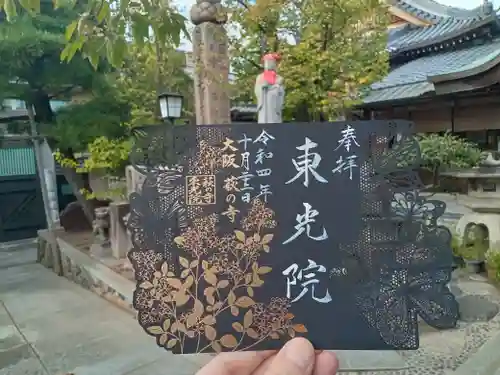 奉拝
東光院
令和四年
十月三十二日
大阪 萩の寺